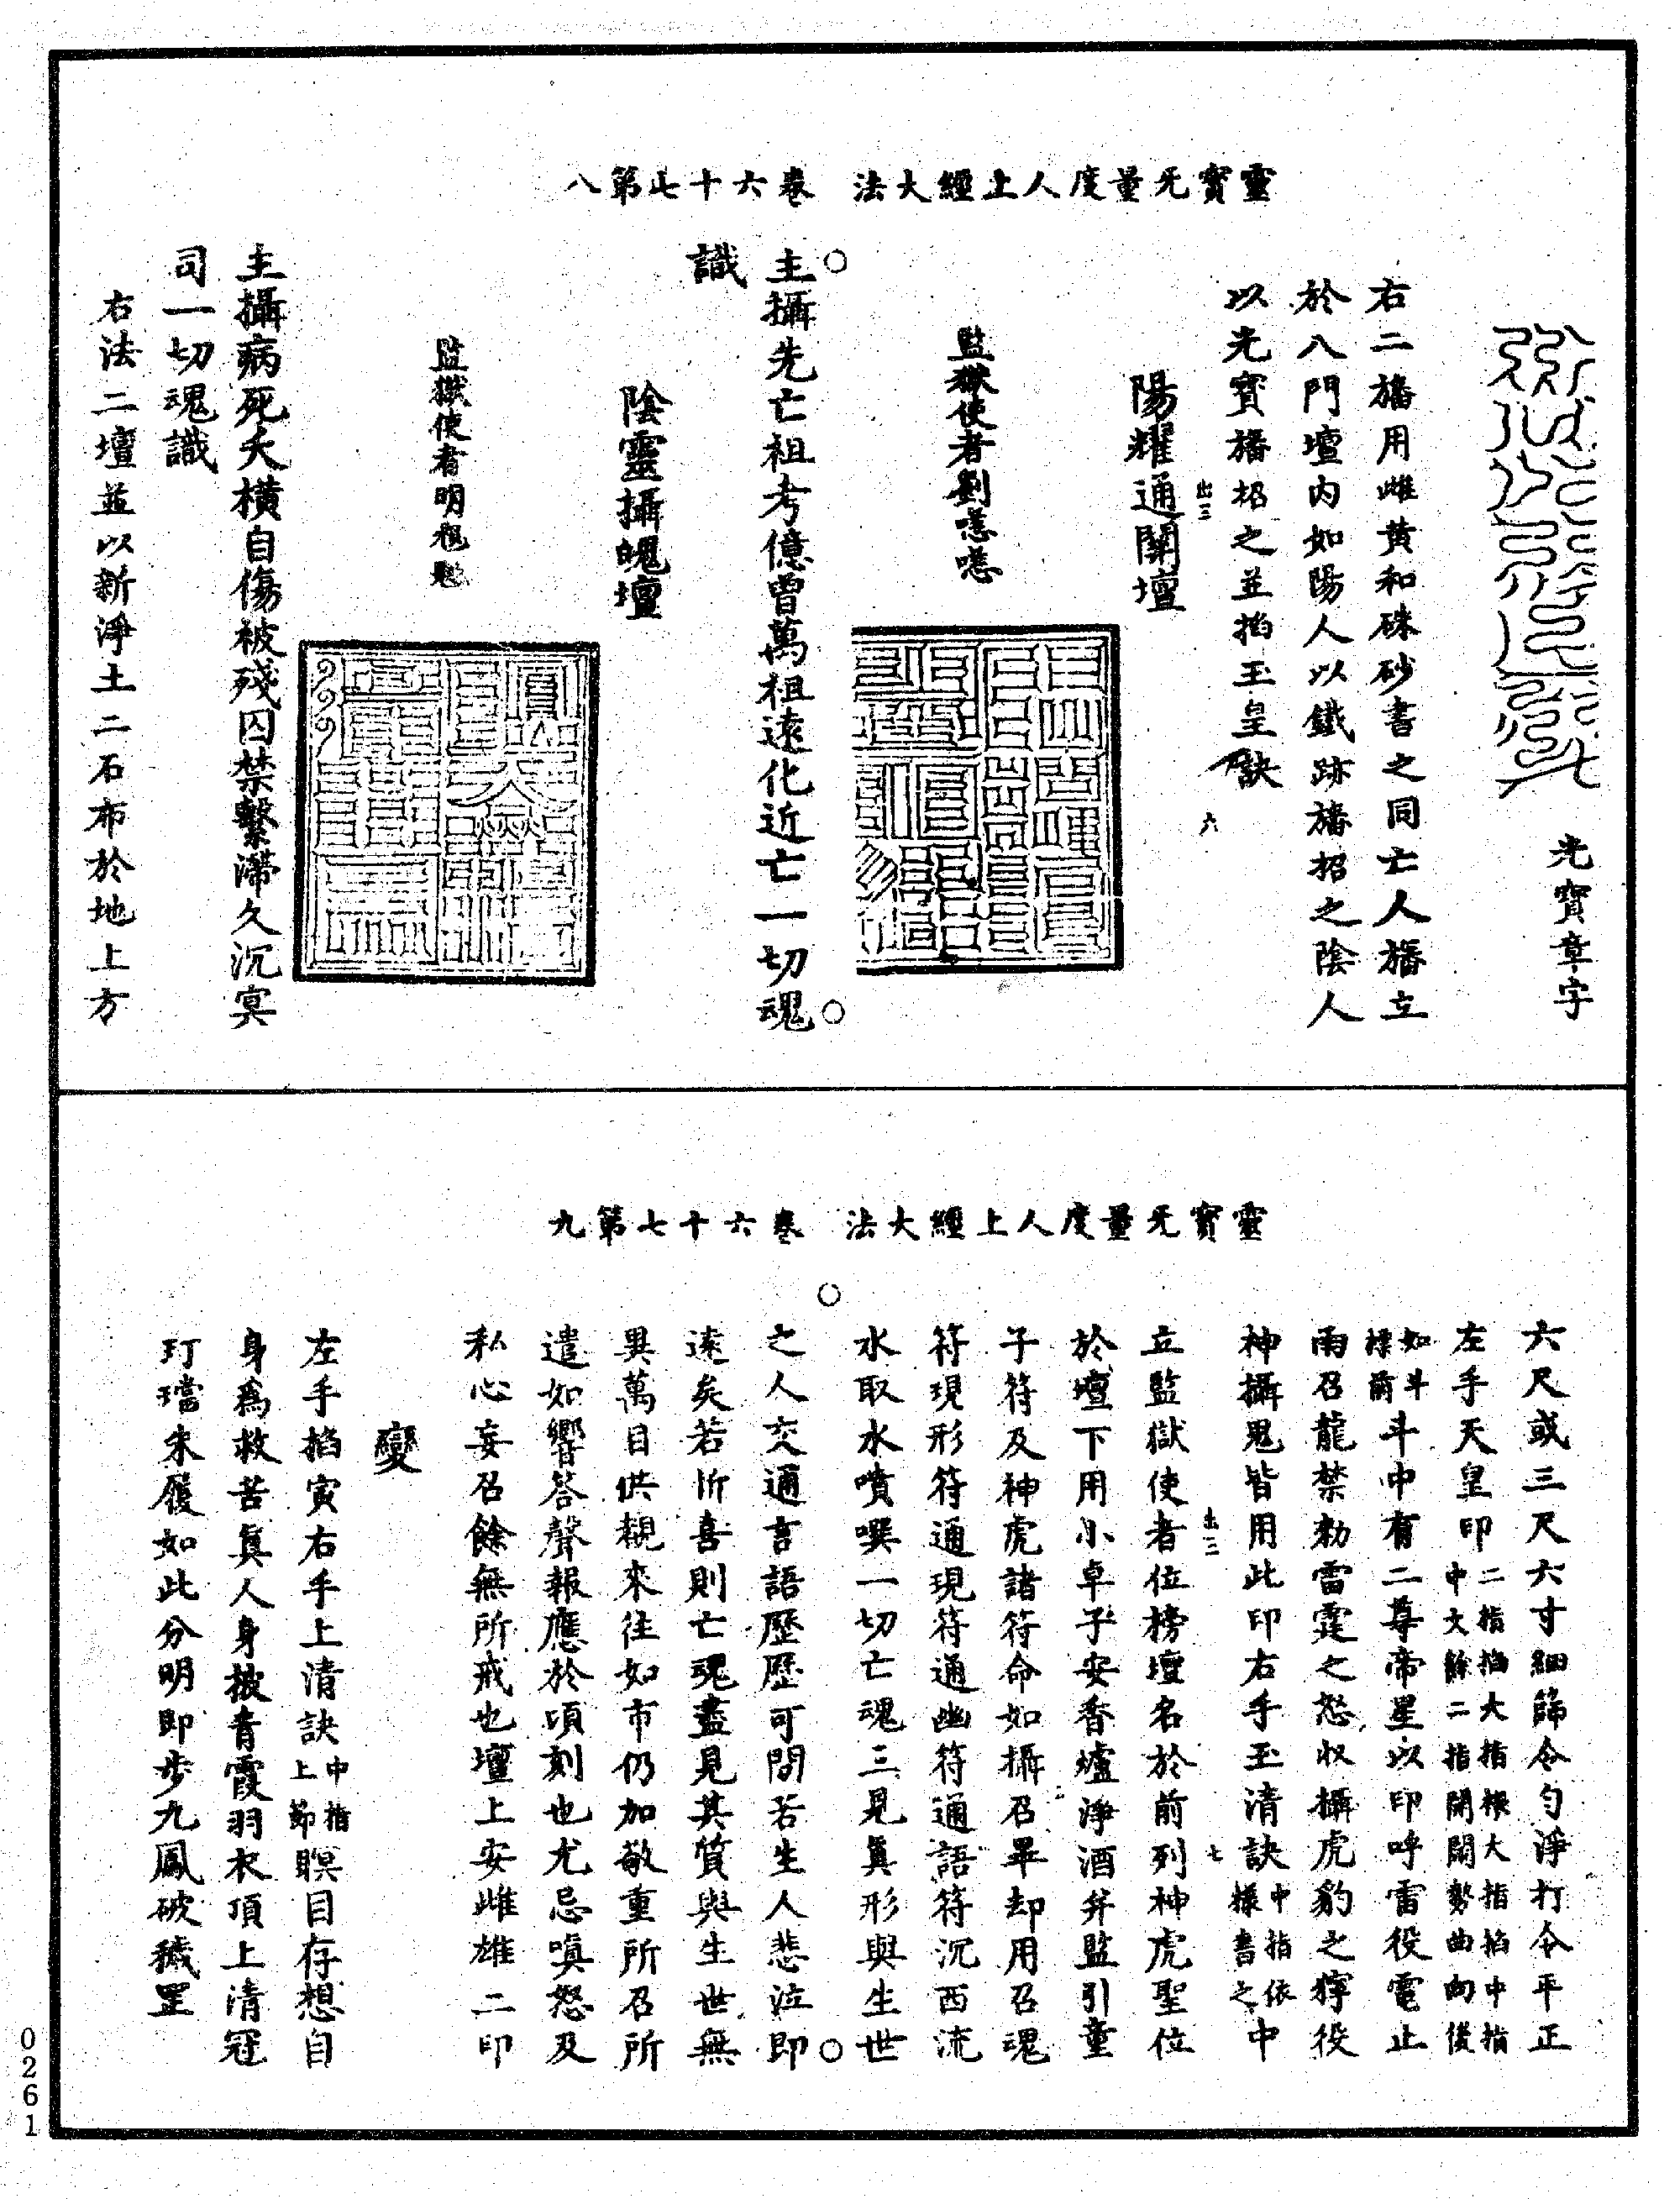 靈寳无量度人上經大法 卷六十七第八
光寳章字
右二旛用雌黄和硃砂書之同亡人旛立
於八門壇内如陽人以鐵跡旛招之陰人
以光寳旛招之並掐玉皇訣
出三 六
陽耀通關壇
監獄使者劉
主攝先亡祖考億曾萬祖遠化近亡一切魂
識
陰靈攝魄壇
監獄使者明
主攝病死夭横自傷被殘囚禁繫滯久沉冥
司一切魂識
右法二壇並以新淨土二石布於地上方
靈寳无量度人上經大法 卷六十七第九
六尺或三尺六寸細篩令勻淨打令平正
左手天皇印二指掐大指根大指掐中指中文餘二指開闢勢曲向後
如斗摽爾斗中有二尊帝星以印呼雷役電止
雨召龍禁勑雷霆之怒收攝虎豹之獰役
神攝鬼皆用此印右手玉清訣中指依㨾書之中
出三 七
立監獄使者位榜壇名於前列神虎聖位
於壇下用小卓子安香爐淨酒并監引童
子符及神虎諸符命如攝召畢却用召魂
符現形符通現符通幽符通語符沉西流
水取水噴噀一切亡魂三見眞形與生世
之人交通言語歷歷可問若生人悲泣即
遠矣若忻喜則亡魂盡見其質與生世無
異萬目供覩來往如市仍加敬重所召所
遣如響答聲報應於頃刻也尤忌嗔怒及
私心妄召餘無所戒也壇上安雌雄二印
變
左手掐寅右手上清訣中指上節瞑目存想自
身爲救苦眞人身披青霞羽衣頂上清冠
玎璫朱履如此分明即步九鳳破穢罡
0261